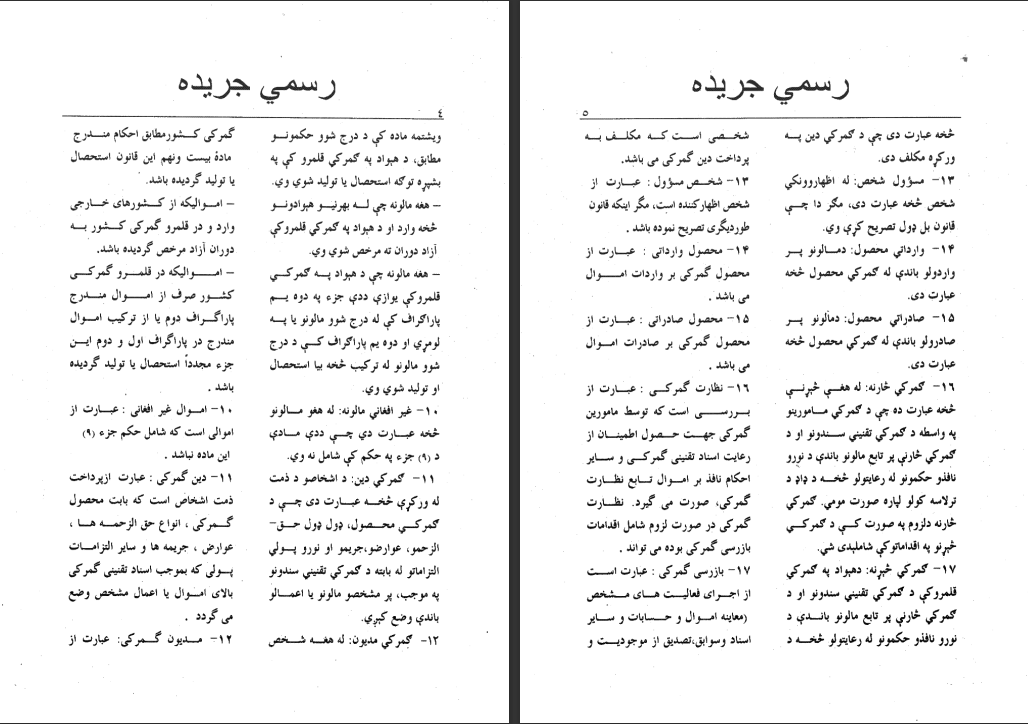 رسمي جريده
٤
ویشتمه ماده کې د درج شوو حکمونو
مطابق، د هېواد په ګمرکي قلمرو کې په
بشپړه توګه استحصال یا تولید شوي وي.
– هغه مالونه چې له بهرنیو هېوادونو
څخه وارد او د هېواد په ګمرکي قلمروکې
آزاد دوران ته مرخص شوي وي.
– هغه مالونه چې د هېواد په ګمرکي
قلمروکې یوازې ددې جزء په دوه یم
پاراګراف کې له درج شوو مالونو یا په
لومړي او دوه یم پاراګراف کې د درج
شوو مالونو له ترکیب څخه بیا استحصال
او تولید شوي وي.
۱۰– غیر افغاني مالونه: له هغو مالونو
څخه عبارت دي چې ددې مادې
د (۹) جزء په حکم کې شامل نه وي.
۱۱– ګمرکي دین: د اشخاصو د ذمت
له ورکړې څخه عبارت دی چې د
ګمرکي محصول، ډول ډول حق–
الزحمو، عوارضو،جریمو او نورو پولي
التزاماتو له بابته د ګمرکي تقنیني سندونو
په موجب، پر مشخصو مالونو یا اعمالو
باندې وضع کېږي.
۱۲– ګمرکي مدیون: له هغه شخص
گمرکی کشورمطابق احکام مندرج
مادۀ بیست ونهم این قانون استحصال
یا تولید گردیده باشد.
– اموالیکه از کشورهای خارجی
وارد و در قلمرو گمرکی کشور به
دوران آزاد مرخص گردیده باشد.
– اموالیکه در قلمرو گمرکی
کشور صرف از اموال مندرج
پاراگراف دوم یا از ترکیب اموال
مندرج در پاراگراف اول و دوم این
جزء مجدداً استحصال یا تولید گردیده
باشد .
۱۰– اموال غیر افغانی : عبارت از
اموالی است که شامل حکم جزء (۹)
این ماده نباشد .
۱۱– دین گمرکی : عبارت ازپرداخت
ذمت اشخاص است که بابت محصول
گمرکی ، انواع حق الزحمه ها ،
عوارض ، جریمه ها و سایر التزامات
پولی که بموجب اسناد تقنینی گمرکی
بالای اموال یا اعمال مشخص وضع
می گردد .
۱۲– مدیون گمرکی: عبارت از
رسمي جريده
٥
څخه عبارت دی چې د ګمرکي دین په
ورکړه مکلف دی.
۱۳– مسؤول شخص: له اظهاروونکي
شخص څخه عبارت دی، مګر دا چې
قانون بل ډول تصریح کړې وي.
۱۴– وارداتي محصول: دمالونو پر
واردولو باندې له ګمرکي محصول څخه
عبارت دی.
۱۵– صادراتي محصول: دمالونو پر
صادرولو باندې له ګمرکي محصول څخه
عبارت دی.
۱۶– ګمرکي څارنه: له هغې څېړنې
څخه عبارت ده چې د ګمرکي مامورینو
په واسطه د ګمرکي تقنیني سندونو او د
ګمرکي څارنې پر تابع مالونو باندې د نورو
نافذو حکمونو له رعایتولو څخه د ډاډ د
ترلاسه کولو لپاره صورت مومي. ګمرکي
څارنه دلزوم په صورت کې د ګمرکي
څېړنو په اقداماتوکې شاملېدی شي.
۱۷– ګمرکي څېړنه: دهېواد په ګمرکي
قلمروکې د ګمرکي تقنیني سندونو او د
ګمرکي څارنې پر تابع مالونو باندې د
نورو نافذو حکمونو له رعایتولو څخه د
شخصی است که مکلف به
پرداخت دین گمرکی می باشد.
۱۳– شخص مسؤل : عبارت از
شخص اظهارکننده است، مگر اینکه قانون
طوردیگری تصریح نموده باشد .
۱۴– محصول وارداتی : عبارت از
محصول گمرکی بر واردات اموال
می باشد .
۱۵– محصول صادراتی : عبارت از
محصول گمرکی بر صادرات اموال
می باشد .
۱۶– نظارت گمرکی : عبارت از
بررسی است که توسط مامورین
گمرکی جهت حصول اطمینان از
رعایت اسناد تقنینی گمرکی و سایر
احکام نافذ بر اموال تابع نظارت
گمرکی، صورت می گیرد. نظارت
گمرکی در صورت لزوم شامل اقدامات
بازرسی گمرکی بوده می تواند .
۱۷– بازرسی گمرکی : عبارت است
از اجرای فعالیت های مشخص
(معاینه اموال و حسابات و سایر
اسناد وسوابق،تصدیق از موجودیت و